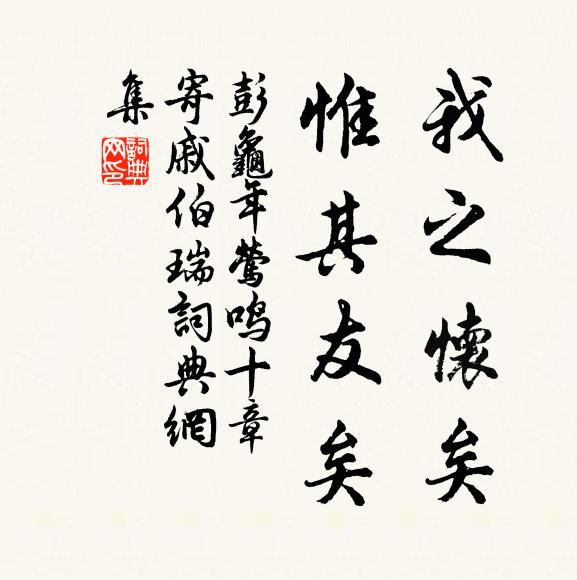 我之懷矣
惟其友矣
彭龜年鶯鳴十章
寄戚伯瑞詞典網
集
詞典
网印